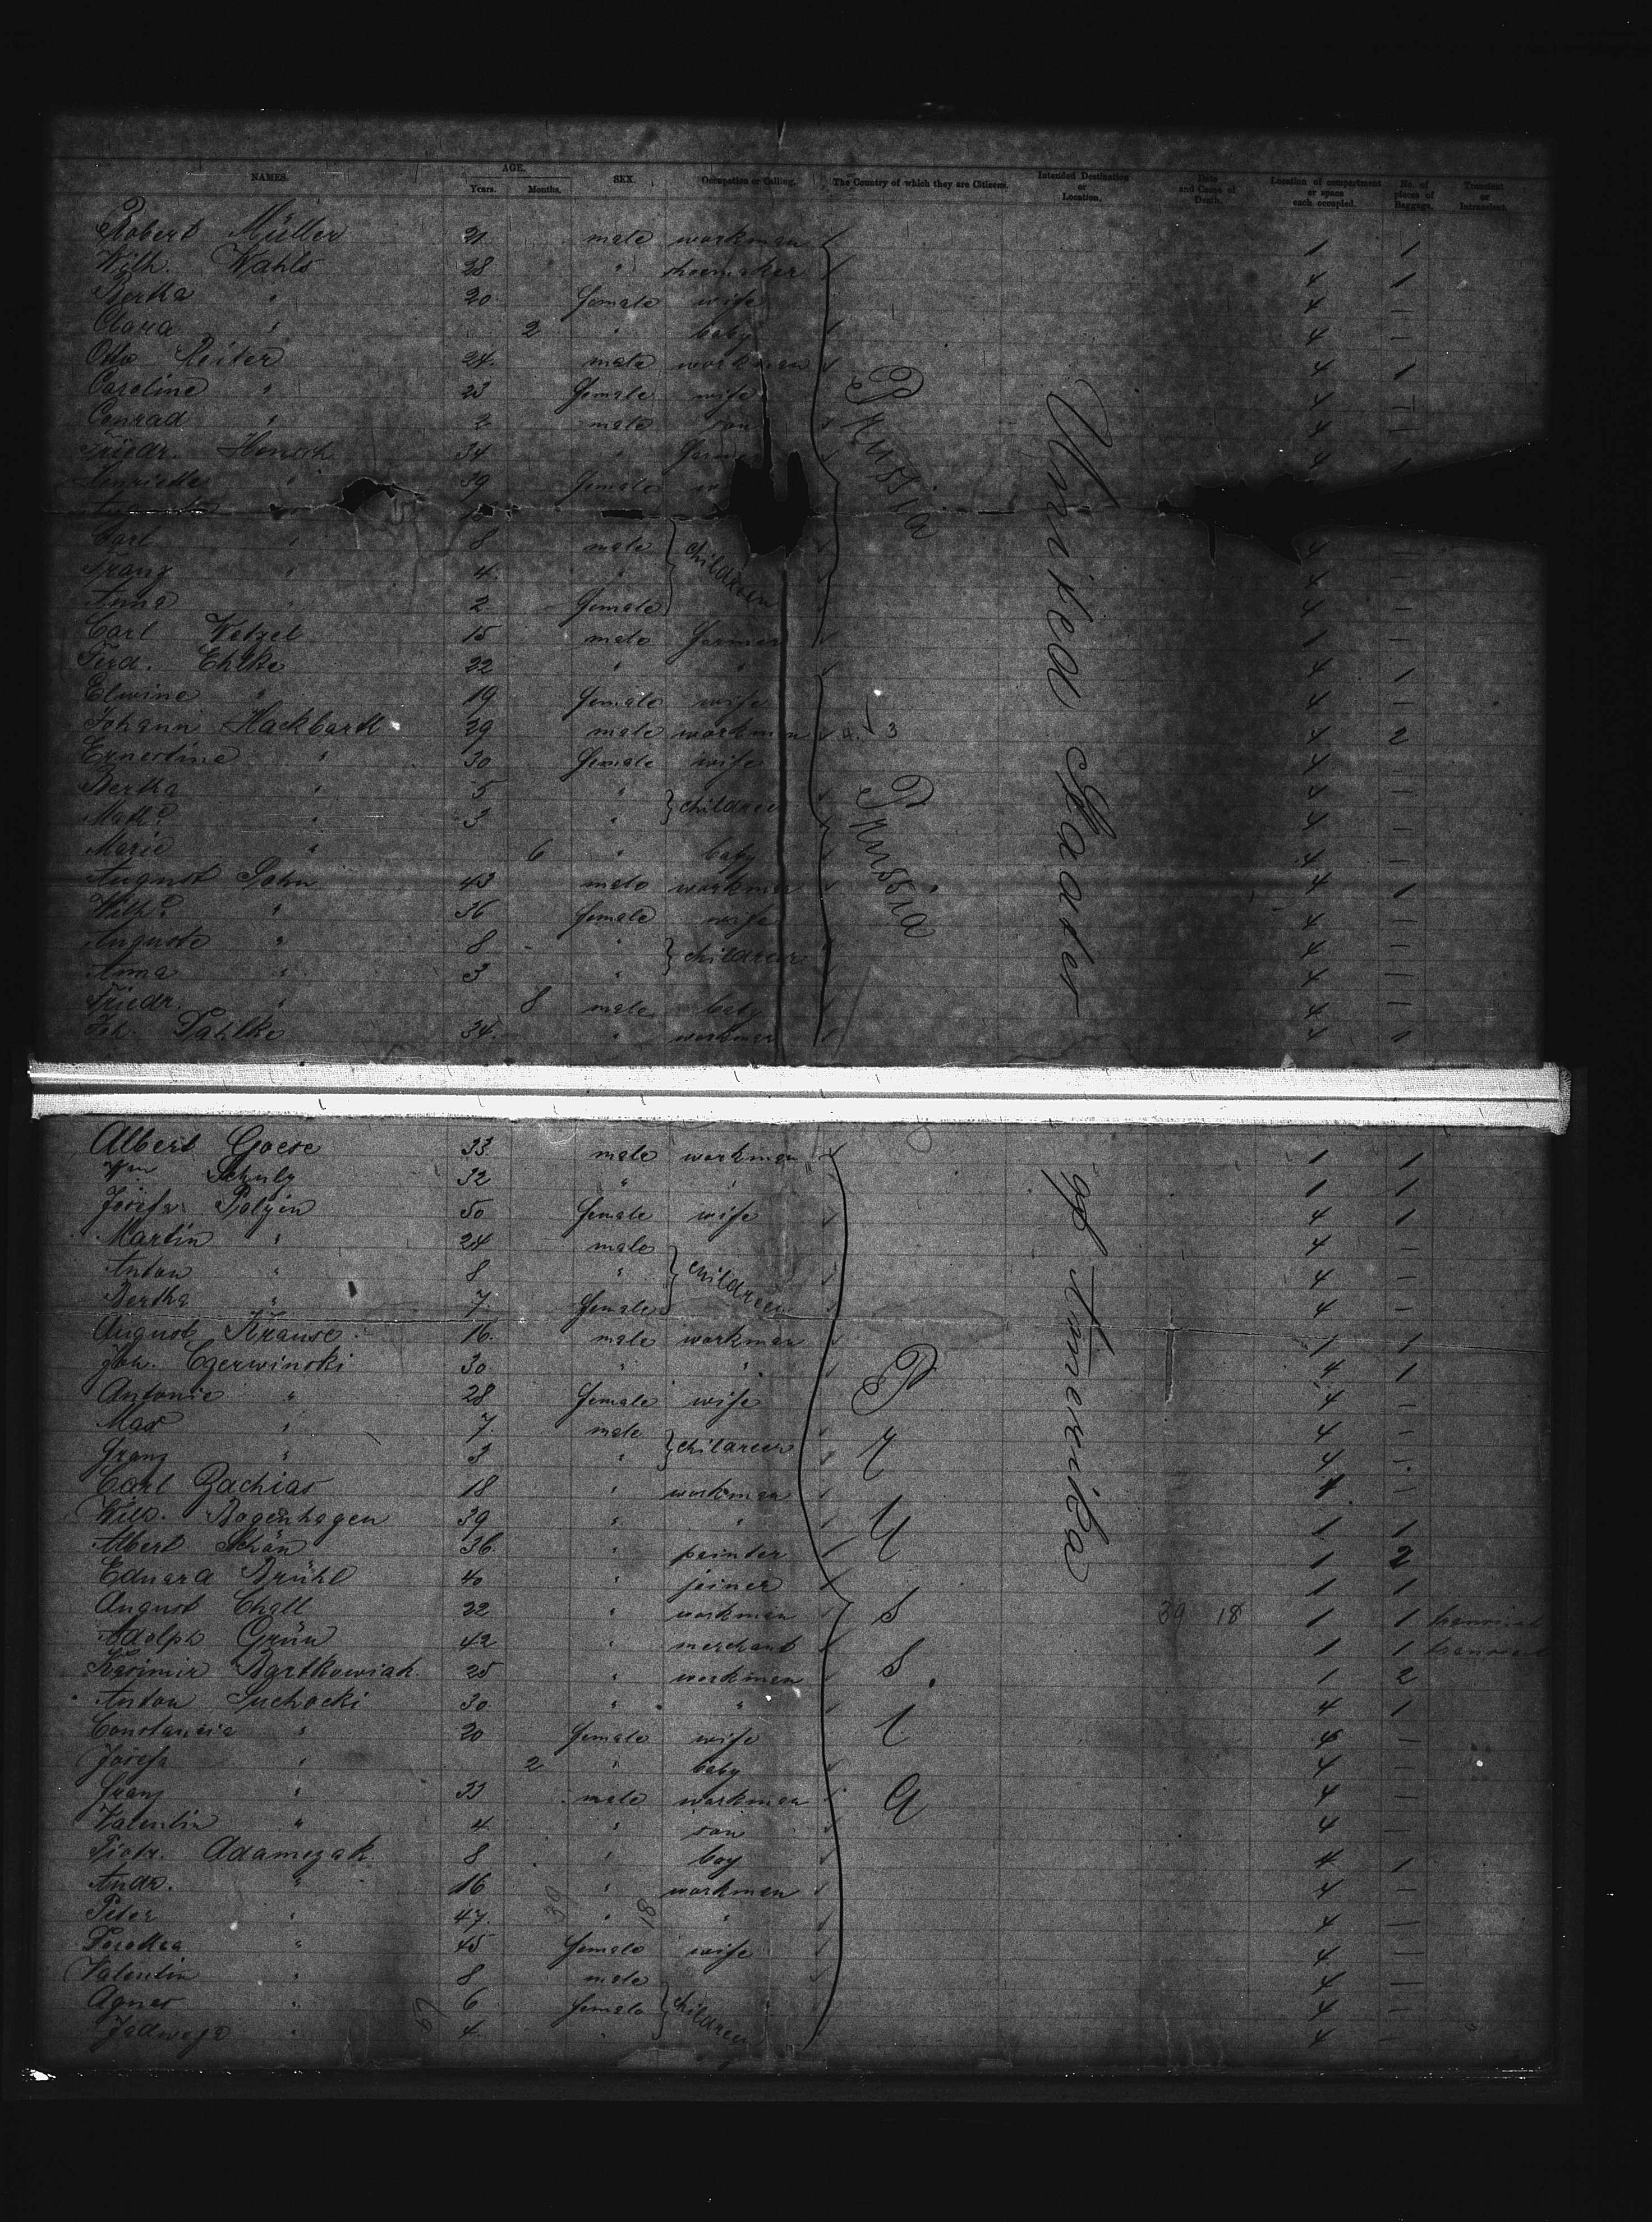 NAMES. AGE. SEX. Occupation or Calling. The Country of which they are Citizens. Intended Destination or Location. Date and Cause of Death. Location of compartment or space each occupied. No. of pieces of Baggage. Transient or Intransient.
Years. Months.
Robert Müller 21 male workman 1 1
Wilh. Wahls 28 " shoemaker 4 1
Bertha " 20 female wife 4 —
Clara " 2 " baby 4 —
Otto Reiter 24 male workman 4 1
Caroline " 23 female wife 4 —
Conrad " 2 male son 4 —
Friedr. 34 " farmer 4 1
Henriette " 39 female
Carl " 8 male children 4 —
Franz " 4 " 4 —
Anna " 2 female 4 —
Prussia
United States
Carl Wetzel 15 male farmer 1 —
Ferd. Ehlke 22 " " 4 1
Elwine " 19 female wife 4 —
Johann Hackbarth 29 male workman 4 2
Ernestine " 30 female wife 4 —
Bertha " 5 " children 4 —
Mathe " 3 " 4 —
Marie " 6 " baby 4 —
August John 43 male workman 4 1
Wilhe " 36 female wife 4 —
Auguste " 8 " children 4 —
Anna " 3 " 4 —
Friedr. " 8 male baby 4 —
Joh. Pahlke 34 " workman 4 1
Prussia
Albert Goese 33 male workman 1 1
Wm Schulz 32 " " 1 1
Josefa 50 female wife 4 1
Martin " 24 male 4 —
Anton " 8 " children 4 —
Bertha " 7 female 4 —
August Krause 16 male workman 1 1
Joh. Czerwinski 30 " " 4 1
Antonie " 28 female wife 4 —
Max " 7 male children 4 —
Franz " 3 " 4 —
Carl Zachias 18 " workman 1 —
Wilh. Bogenhagen 39 " " 1 1
Albert Schön 36 " painter 1 2
Eduard Brühl 40 " joiner 1 1
August Chall 22 " workman 39 18 1 1
Adolph Grün 42 " merchant 1 1
Kasimir Bartkowiak 25 " workman 1 2
Anton Suchocki 30 " " 4 1
Constancia " 20 female wife 4 —
Josefa " 2 " baby 4 —
Franz " 33 male workman 4 —
Valentin " 4 " son 4 —
Piotr. Adamczak 8 " boy 4 1
Andr. " 16 " workman 4 —
Peter " 47 " " 4 —
Dorothea " 45 female wife 4 —
Valentin " 8 male 4 —
Agnes " 6 female children 4 —
Jadwega " 4 " 4 —
Prussia
of Amerika